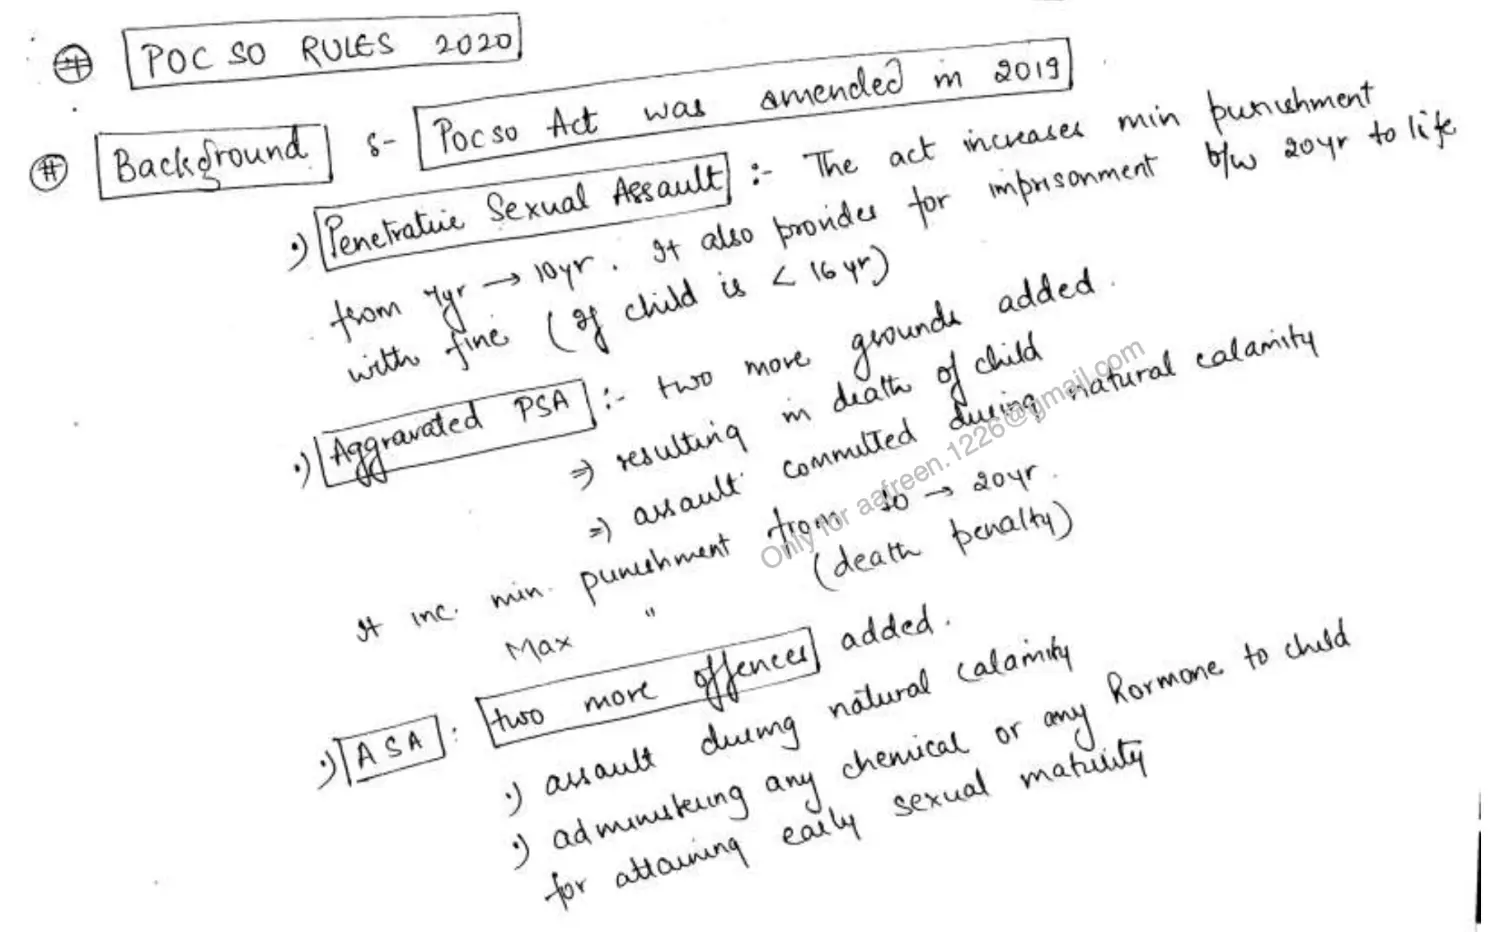 # POCSO RULES 2020
# Background :- Pocso Act was amended in 2019
•) Penetrative Sexual Assault :- The act increases min punishment
from 7yr → 10yr. It also provides for imprisonment b/w 20yr to life
with fine (if child is < 16 yr)
•) Aggravated PSA :- two more grounds added.
⇒ resulting in death of child
⇒ assault committed during natural calamity
It inc. min. punishment from 10 → 20yr.
Max " (death penalty)
•) ASA : two more offences added.
•) assault during natural calamity
•) administering any chemical or any hormone to child
for attaining early sexual maturity
Only for aafreen.1226@gmail.com